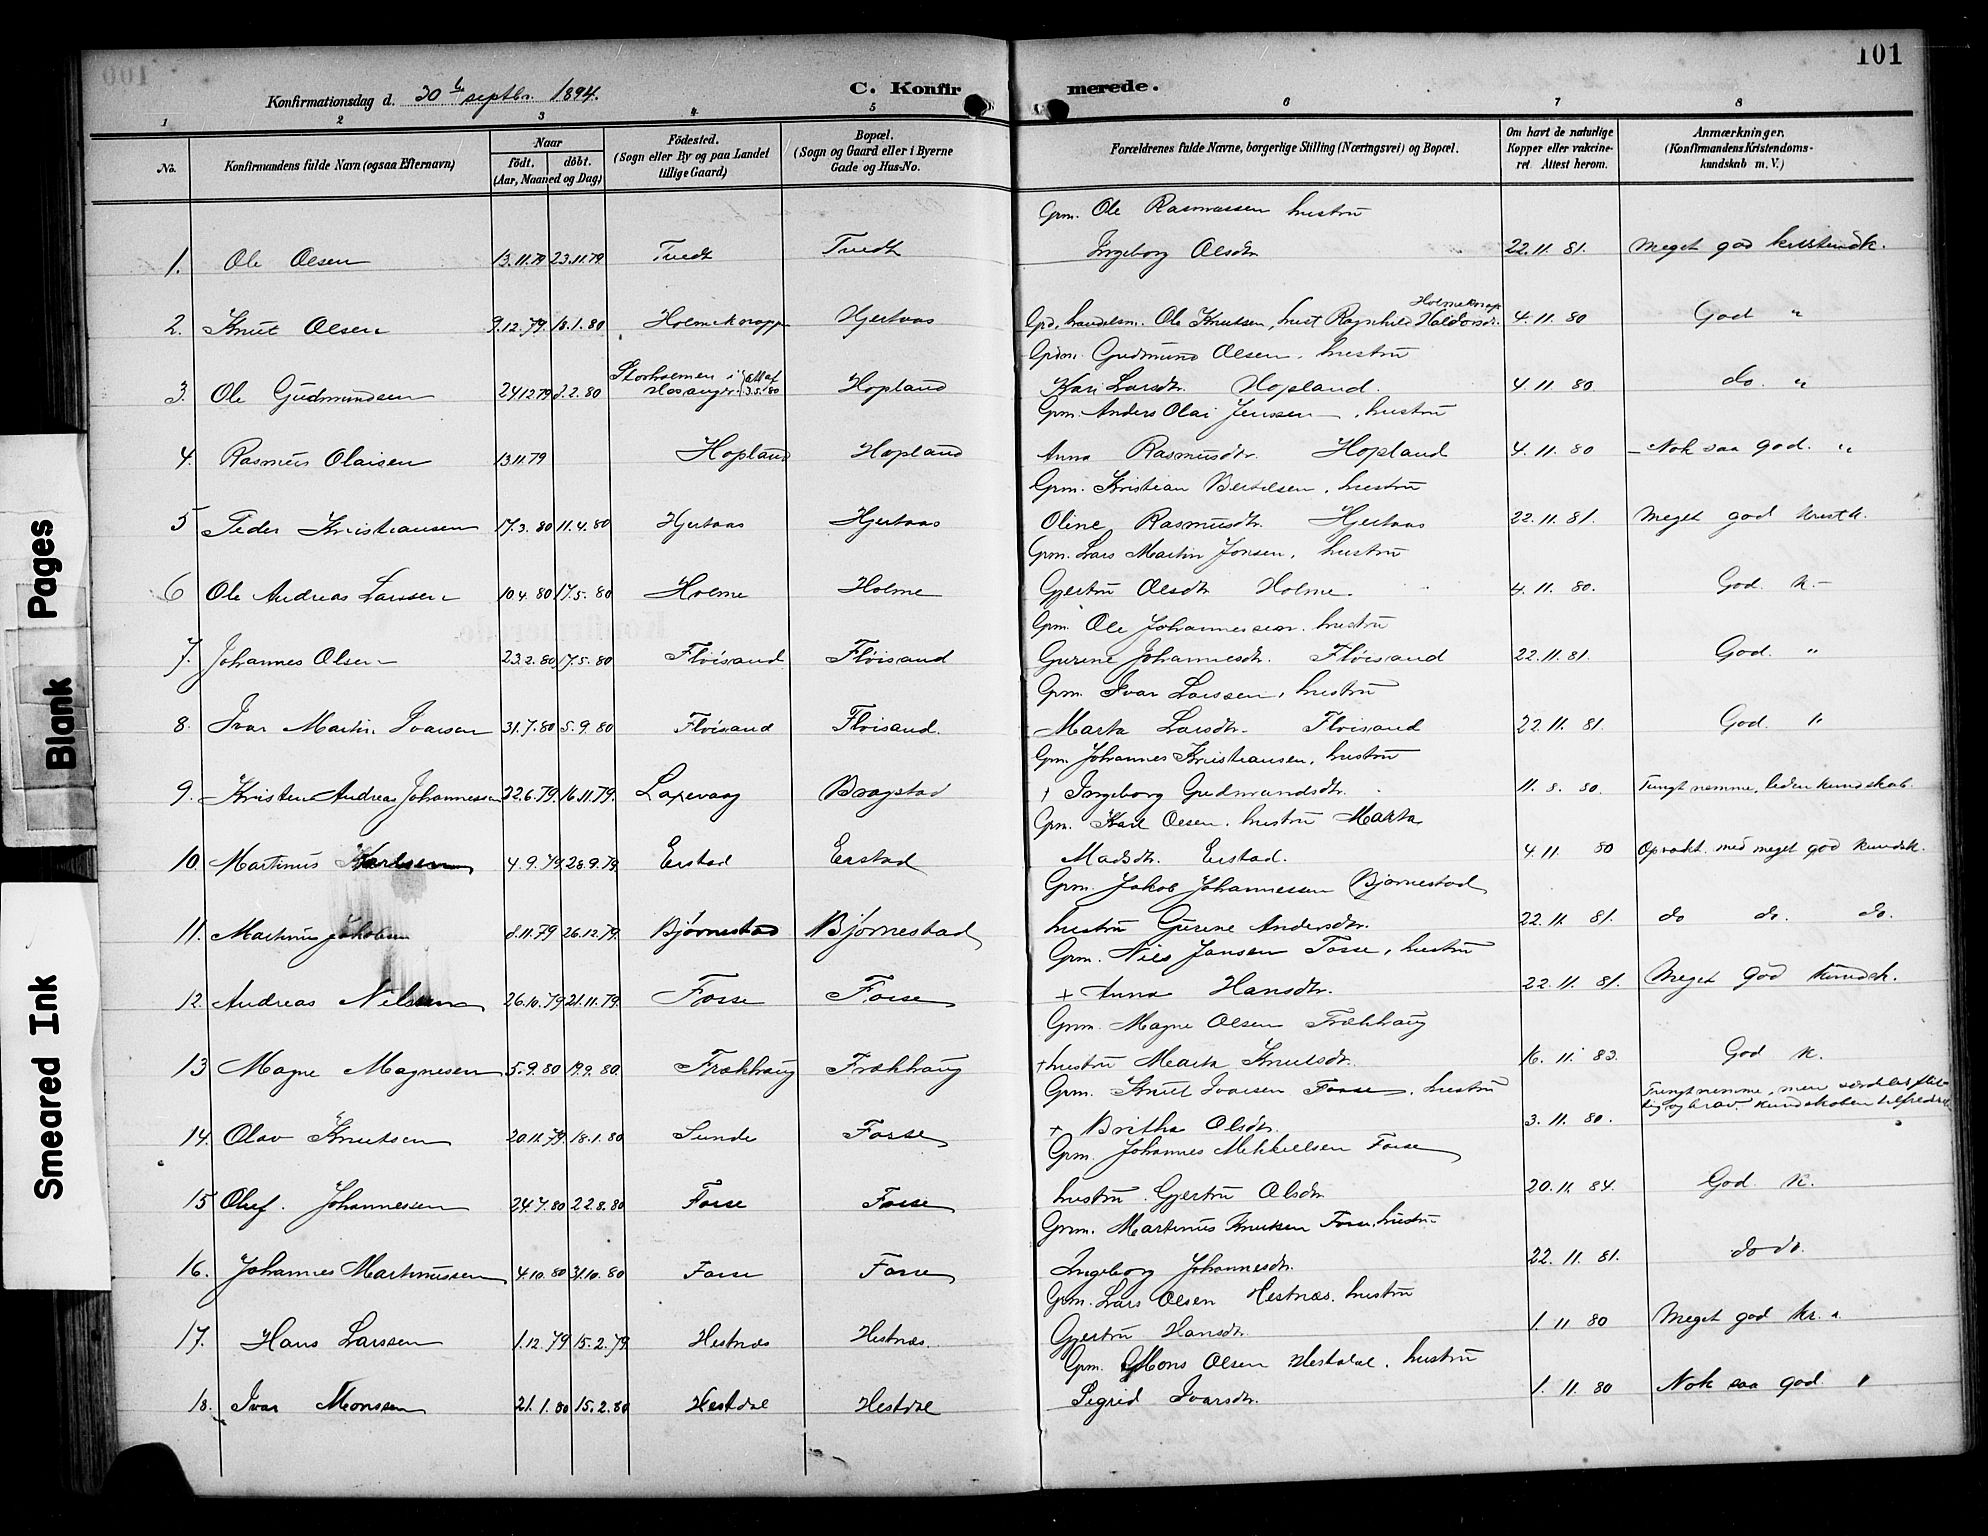 101
Konfirmationsdag d. 30te septbr. 1894.
C. Konfirmerede.
1 2 3 4 5 6 7 8
No.
Konfirmandens fulde Navn (ogsaa Efternavn)
Naar
født. døbt.
(Aar, Maaned og Dag)
Fødested.
(Sogn eller By og paa Landet
tillige Gaard)
Bopæl.
(Sogn og Gaard eller i Byerne
Gade og Hus-No.
Forældrenes fulde Navne, borgerlige Stilling (Næringsvei) og Bopæl.
Om havt de naturlige
Kopper eller vakcine-
ret. Attest herom.
Anmærkninger.
(Konfirmandens Kristendoms-
kundskab m. V.)
Grm. Ole Rasmussen hustru
1. Ole Olsen 13.11.79 23.11.79 Tvedt Tvedt Ingeborg Olsdtr. 22.11.81. Meget god
Holmeknapp
2. Knut Olsen 9.12.79. 18.1.80 Holmeknapp Hjertaas Gpd, handelsm. Ole Knutsen, hust Ragnhild Haldorsdr. 4.11.80 God "
Gpdm. Gudmund Olsen, hustru
Storholmen i
3. Ole Gudmundsen 24.12.79 8.2.80 Hosanger Hopland Kari Larsdtr. Hopland. 4.11.80. do. "
Grm. Anders Olai Jenssen, hustru
4. Rasmus Olaisen 13.11.79 Hopland Hopland Anna Rasmusdtr. Hopland 4.11.80 – Nok saa god. "
Grm. Kristian Bertelsen, hustru
5 Peder Kristiansen 17.3.80 11.4.80 Hjertaas Hjertaas Oline Rasmusdtr. Hjertaas 22.11.81. Meget god kristk.
Grm. Lars Martin Jonsen, hustru
6 Ole Andreas Larsen 10.4.80 17.5.80 Holme Holme Gjertru Olsdtr Holme. 4.11.80. God. K.
Grm. Ole Johannessen. hustru
7. Johannes Olsen 23.2.80 17.5.80 Fløisand Fløisand Gurine Johannesdtr. Fløisand 22.11.81. God. "
Grm. Ivar Larssen, hustru
8. Ivar Martin Ivarsen 31.7.80 5.9.80 Fløisand Fløisand. Marta Larsdtr. Fløisand 22.11.81. God. "
Grm. Johannes Kristiansen, hustru
9. Kristen Andreas Johannessen 22.6.79. 16.11.79. Laxevaag Bragstad † Ingeborg Gudmundsdtr. 11.8.80. Tungt nemme, liden kundskab.
Grm. Karl Olsen, hustru Marta
10. Martinus Karlsen 4.9.79. 28.9.79. Eistad Eistad Madsdtr. Eistad. 4.11.80 Opvakt. med meget god kundsk.
Grm. Jakob Johannessen Bjørnestad
11. Martinus Jakobsen 8.11.79 26.12.79. Bjørnestad Bjørnestad hustru Gurine Andersdtr. 22.11.81. do do. do.
Grm. Nils Jansen Fosse, hustru
12. Andreas Nilssen 26.10.79 21.11.79. Fosse Fosse + Anna Hansdtr. 22.11.81. Meget god kundsk.
Grm. Magne Olsen Frækhaug
13 Magne Magnesen 5.9.80 19.9.80. Frækhaug Frækhaug † hustru Marta Knutsdtr. 16.11.83. God K.
Grm. Knut Ivarsen Fosse, hustru
Tungt nemme, men særdeles flit-
tig og brav.
14. Olav Knutsen 20.11.79. 18.1.80 Sunde Fosse + Britha Olsdtr. 3.11.80.
Grm. Johannes Mikkelsen Fosse
15 Oluf. Johannessen 24.7.80 22.8.80 Fosse Fosse hustru. Gjertru Olsdtr 20.11.84. God. K.
Grm. Martinus Knutsen Fosse, hustru
16. Johannes Martinussen 4.10.80 31.10.80 Fosse Fosse Ingeborg Johannesdtr. 22.11.81. do do.
Grm. Lars Olsen Hestnæs. hustru
17. Hans Larssen 1.12.79 15.2.79. Hestnæs Hestnæs. Gjertru Hansdtr. 1.11.80 Meget god kr. "
Grm. Mons Olsen Hestdal. hustru
18. Ivar Monssen 21.1.80 15.2.80 Hestdal Hestdal Sigrid Ivarsdtr. 1.11.80 Nok saa god. "
Blank Pages
Smeared Ink